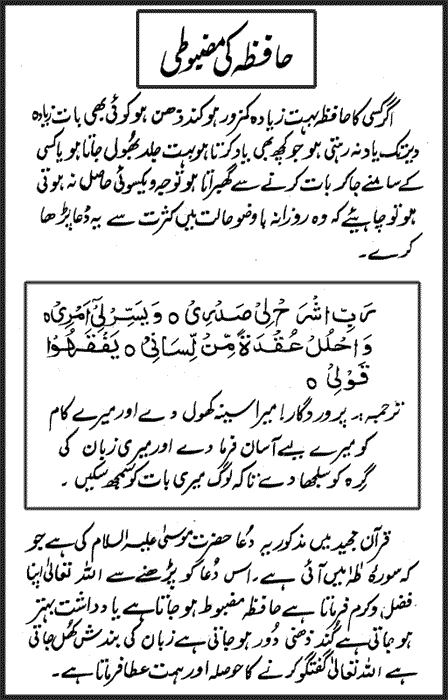 حافظہ کی مضبوطی
اگر کسی کا حافظہ بہت زیادہ کمزور ہو کند ذہن ہو کوئی بھی بات زیادہ
دیر تک یاد نہ رہتی ہو جو کچھ بھی یاد کرتا ہو بہت جلد بھول جاتا ہو یا کسی
کے سامنے جا کر بات کرنے سے گھبراتا ہو توجہ و یکسوئی حاصل نہ ہوتی
ہو تو چاہیئے کہ وہ روزانہ باوضو حالت میں کثرت سے یہ دُعا پڑھا
کرے۔
رَبِّ اشْرَحْ لِیْ صَدْرِیْ ○ وَیَسِّرْ لِیْٓ اَمْرِیْ ○
وَاحْلُلْ عُقْدَةً مِّنْ لِّسَانِیْ ○ یَفْقَهُوْا
قَوْلِیْ ○
ترجمہ:۔ پروردگار! میرا سینہ کھول دے اور میرے کام
کو میرے لیے آسان فرما دے اور میری زبان کی
گِرہ کو سلجھا دے تاکہ لوگ میری بات کو سمجھ سکیں ۔
قرآن مجید میں مذکور یہ دُعا حضرت موسیٰ علیہ السلام کی ہے جو
کہ سورۂ طٰہٰ میں آئی ہے۔ اس دُعا کو پڑھنے سے اللہ تعالیٰ اپنا
فضل و کرم فرماتا ہے حافظہ مضبوط ہو جاتا ہے یادداشت بہتر
ہو جاتی ہے کُند ذہنی دُور ہو جاتی ہے زبان کی بندش کھُل جاتی
ہے اللہ تعالیٰ گفتگو کرنے کا حوصلہ اور ہمت عطا فرماتا ہے۔